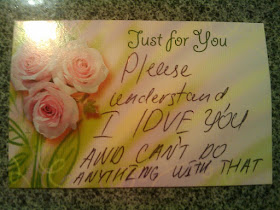 Just for You
Please
understand
I LOVE YOU
AND CAN'T DO
ANYTHING WITH THAT